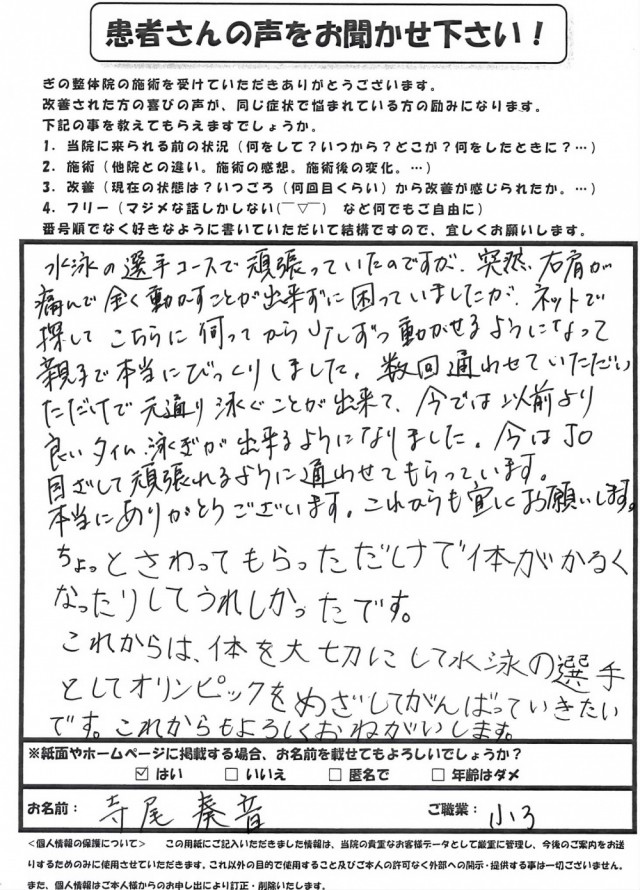 患者さんの声をお聞かせ下さい！
ぎの整体院の施術を受けていただきありがとうございます。
改善された方の喜びの声が、同じ症状で悩まれている方の励みになります。
下記の事を教えてもらえますでしょうか。
1．当院に来られる前の状況（何をして？いつから？どこが？何をしたときに？…）
2．施術（他院との違い。施術の感想。施術後の変化。…）
3．改善（現在の状態は？いつごろ（何回目くらい）から改善が感じられたか。…）
4．フリー（マジメな話しかしない(￣▽￣)　など何でもご自由に）
番号順でなく好きなように書いていただいて結構ですので、宜しくお願いします。
水泳の選手コースで頑張っていたのですが、突然、右肩が
痛んで全く動かすことが出来ずに困っていましたが、ネットで
探してこちらに伺ってから少しずつ動かせるようになって
親子で本当にびっくりしました。数回通わせていただい
ただけで元通り泳ぐことが出来て、今では以前より
良いタイム、泳ぎが出来るようになりました。今はJO
目ざして頑張れるように通わせてもらっています。
本当にありがとうございます。これからも宜しくお願いします。
ちょっとさわってもらっただけで体がかるく
なったりしてうれしかったです。
これからは、体を大切にして水泳の選手
としてオリンピックをめざしてがんばっていきたい
です。これからもよろしくおねがいします。
※紙面やホームページに掲載する場合、お名前を載せてもよろしいでしょうか？
☑ はい　□ いいえ　□ 匿名で　□ 年齢はダメ
お名前：寺尾 奏音　ご職業：小3
＜個人情報の保護について＞　この用紙にご記入いただきました情報は、当院の貴重なお客様データとして厳重に管理し、今後のご案内をお送
りするためのみに使用させていただきます。これ以外の目的で使用すること及びご本人の許可なく外部への開示・提供する事は一切ございません。
また、個人情報はご本人様からのお申し出により訂正・削除いたします。